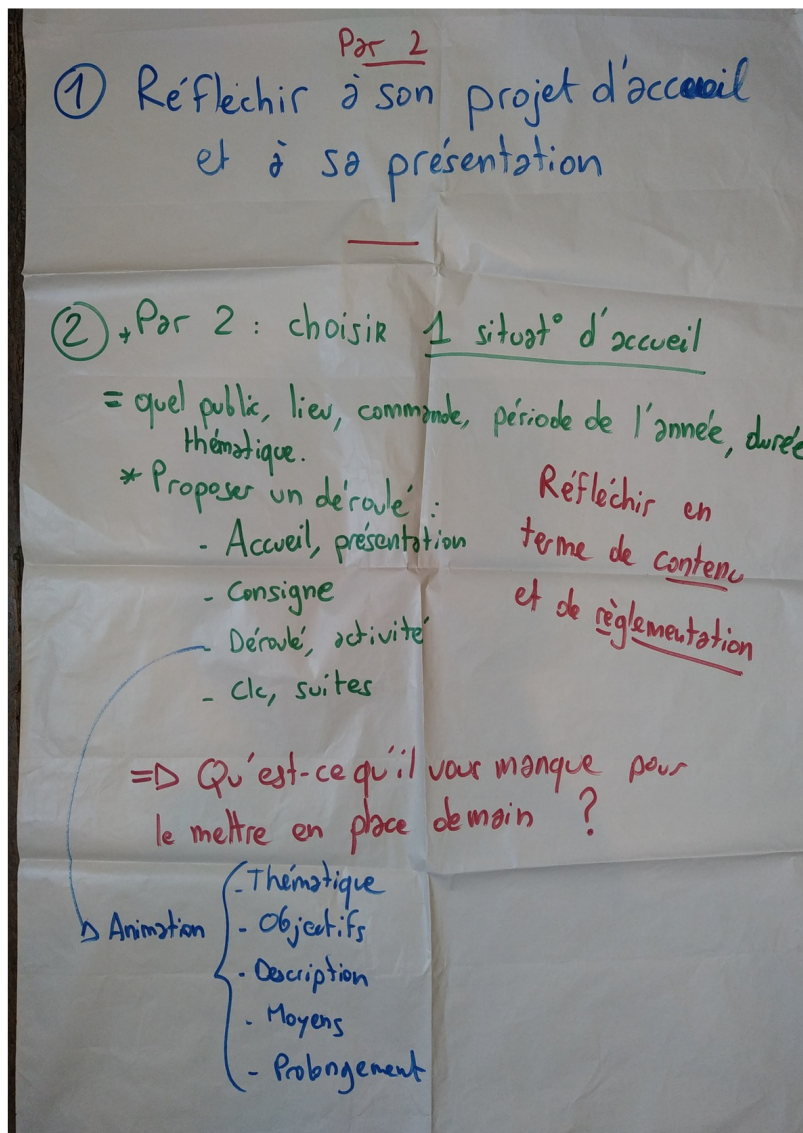 Par 2
① Réfléchir à son projet d'accueil
et à sa présentation
② * Par 2 : choisir 1 situat° d'accueil
= quel public, lieu, commande, période de l'année, durée
thématique.
* Proposer un déroulé :
- Accueil, présentation
- Consigne
- Déroulé, activité
- Clc, suites
Réfléchir en
terme de contenu
et de règlementation
=> Qu'est-ce qu'il vous manque pour
le mettre en place demain ?
Animation
- Thématique
- Objectifs
- Description
- Moyens
- Prolongement